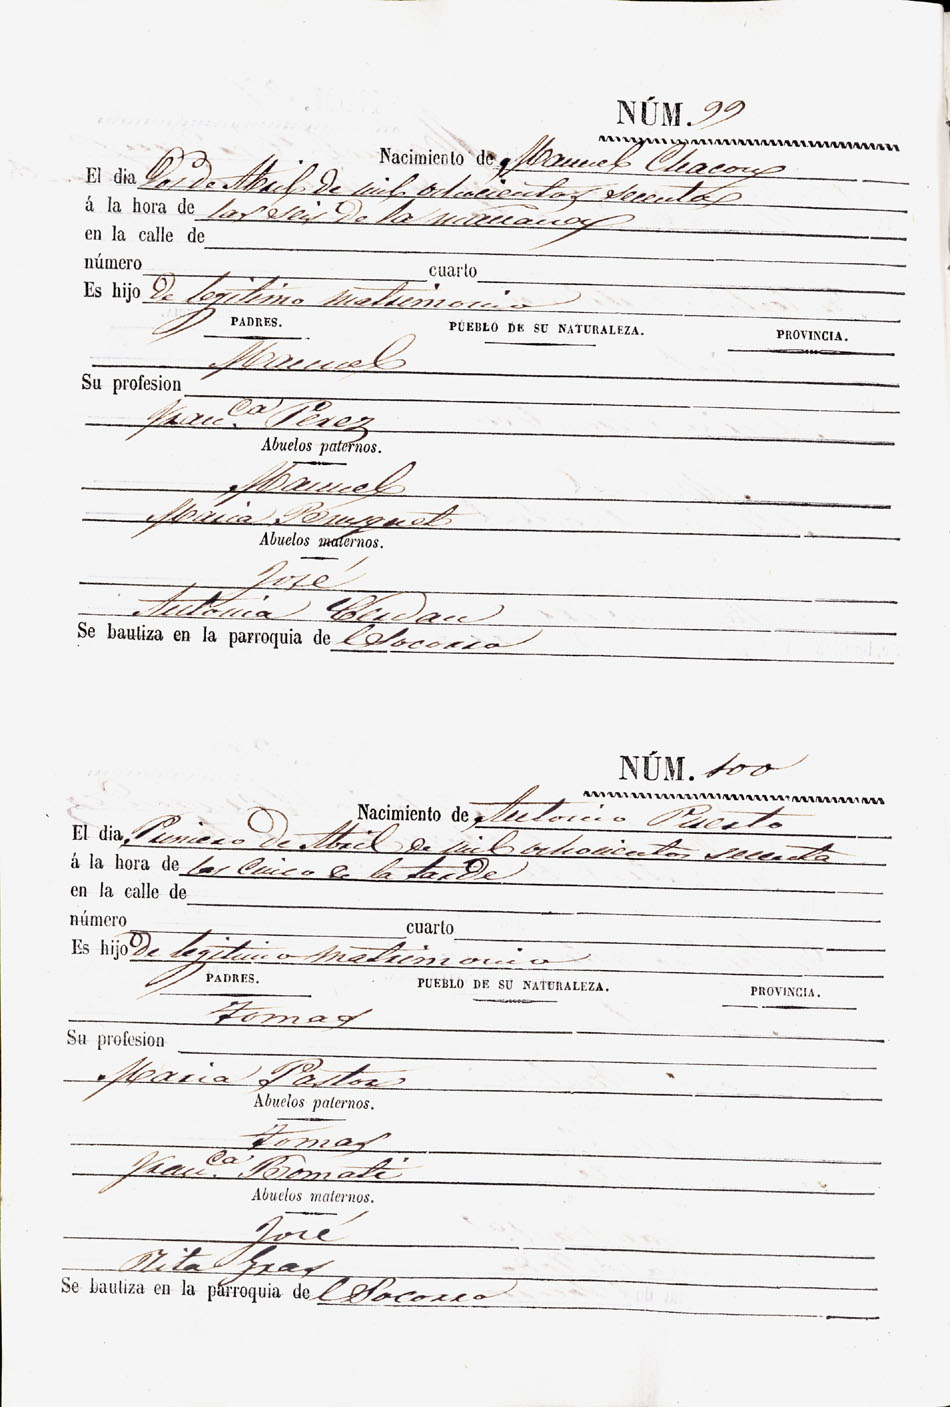 NÚM. 99
Nacimiento de Manuel Chacon
El dia Dos de Abril de mil ochocientos sesenta
á la hora de las seis de la mañana
en la calle de
número cuarto
Es hijo de legitimo matrimonio
PADRES. PUEBLO DE SU NATURALEZA. PROVINCIA.
Manuel
Su profesion
Fran.ca Perez
Abuelos paternos.
Manuel
Maria
Abuelos maternos.
José
Antonia Cerdan
Se bautiza en la parroquia del Socorro
NÚM. 100
Nacimiento de Antonio Puerto
El dia Primero de Abril de mil ochocientos sesenta
á la hora de las cinco de la tarde
en la calle de
número cuarto
Es hijo de legitimo matrimonio
PADRES. PUEBLO DE SU NATURALEZA. PROVINCIA.
Tomas
Su profesion
Maria Pastor
Abuelos paternos.
Tomas
Fran.ca
Abuelos maternos.
José
Rita Gras
Se bautiza en la parroquia del Socorro